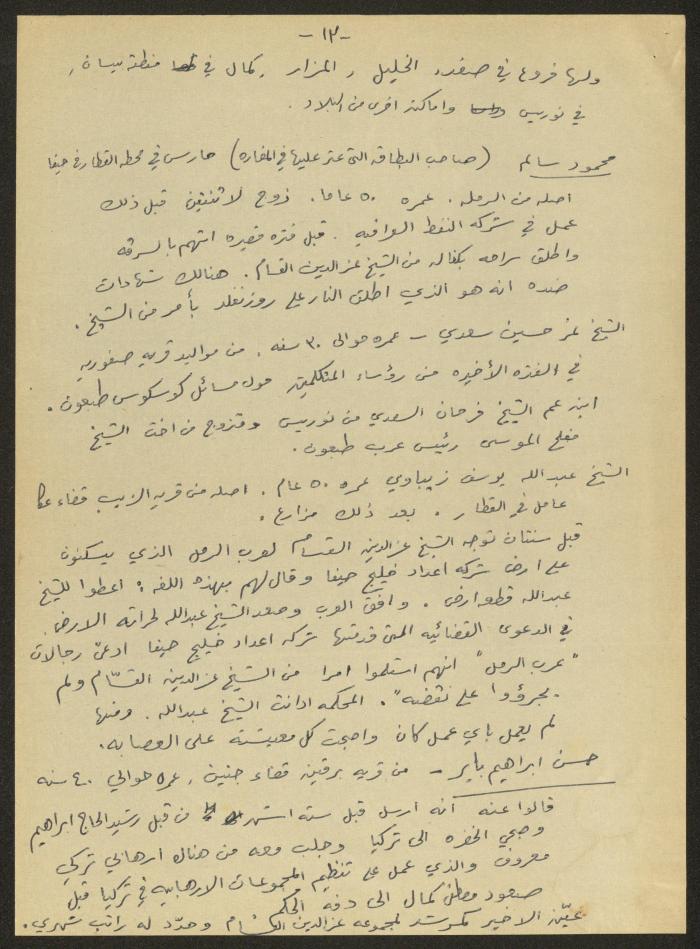 -١٣-
ولها فروع في صفد، الخليل، المزار، كمال في منطقة بيسان،
في نوريس واماكن اخرى من البلاد.
محمود سالم (صاحب البطاقه التي عثر عليها في المغاره) حارس في محطه القطار في حيفا
اصله من الرمله. عمره ٥٠ عاما. زوج لاثنتين قبل ذلك
عمل في شركه النفط العراقيه. قبل فتره قصيره اتهم بالسرقه
واطلق سراحه بكفاله من الشيخ عز الدين القسام. هنالك شهادات
ضده انه هو الذي اطلق النار على روزنفلد بأمر من الشيخ.
الشيخ نمر حسين سعدي - عمره حوالى ٣٠ سنه. من مواليد قريه صفوريه
في الفتره الأخيره من رؤساء المتكلمين حول مسائل كوسكوس طبعون.
ابن عم الشيخ فرحان السعدي من نوريس ومتزوج من اخت الشيخ
مفلح الموسى رئيس عرب طبعون.
الشيخ عبد الله يوسف زيباوي عمره ٥٠ عام. اصله من قريه الزيب قضاء عكا
عامل في القطار. بعد ذلك مزارع.
قبل سنتان توجه الشيخ عز الدين القسام لعرب الرمل الذي يسكنون
على ارض شركه اعداد خليج حيفا وقال لهم بهذه اللغه: اعطوا للشيخ
عبد الله قطع ارض. وافق العرب وصعد الشيخ عبد الله لحراثه الارض.
في الدعوى القضائيه التي قدمتها شركه اعداد خليج حيفا ادعى رجالات
"عرب الرمل" انهم استلموا امرا من الشيخ عز الدين القسّام ولم
يجرؤوا على نقضه". المحكمه ادانت الشيخ عبد الله. ومنها
لم يعمل باي عمل كان واصبحت كل معيشته على العصابه.
حسن ابراهيم باير - من قريه برقين قضاء جنين، عمره حوالي ٤٠ سنه
قالوا عنه انه ارسل قبل سته اشهر من قبل رشيد الحاج ابراهيم
وصبحي الخضره الى تركيا وجلب معه من هناك ارهابي تركي
معروف والذي عمل على تنظيم المجموعات الارهابيه في تركيا قبل
صعود مصطفى كمال الى دفه الحكم
عيّن الاخير كمرشد لمجموعه عز الدين القسام وحدّد له راتب شهري.